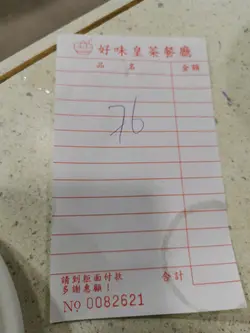 好味皇茶餐廳
品名 金額
76
請到柜面付款 合計
多謝惠顧！
No 0082621